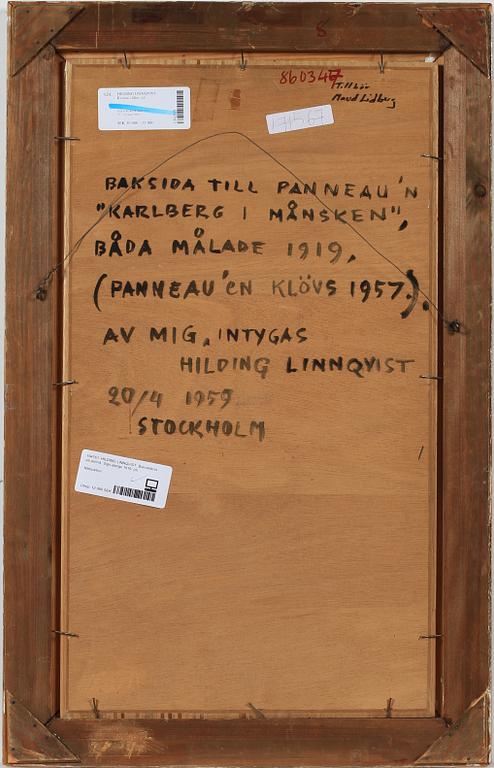 8
860347
Tillhör
Maud Lidberg
HILDING LINNQVIST
BAKSIDA TILL PANNEAU'N
"KARLBERG I MÅNSKEN",
BÅDA MÅLADE 1919,
(PANNEAU'EN KLÖVS 1957).
AV MIG, INTYGAS
HILDING LINNQVIST
20/4 1959
STOCKHOLM
HILDING LINNQVIST